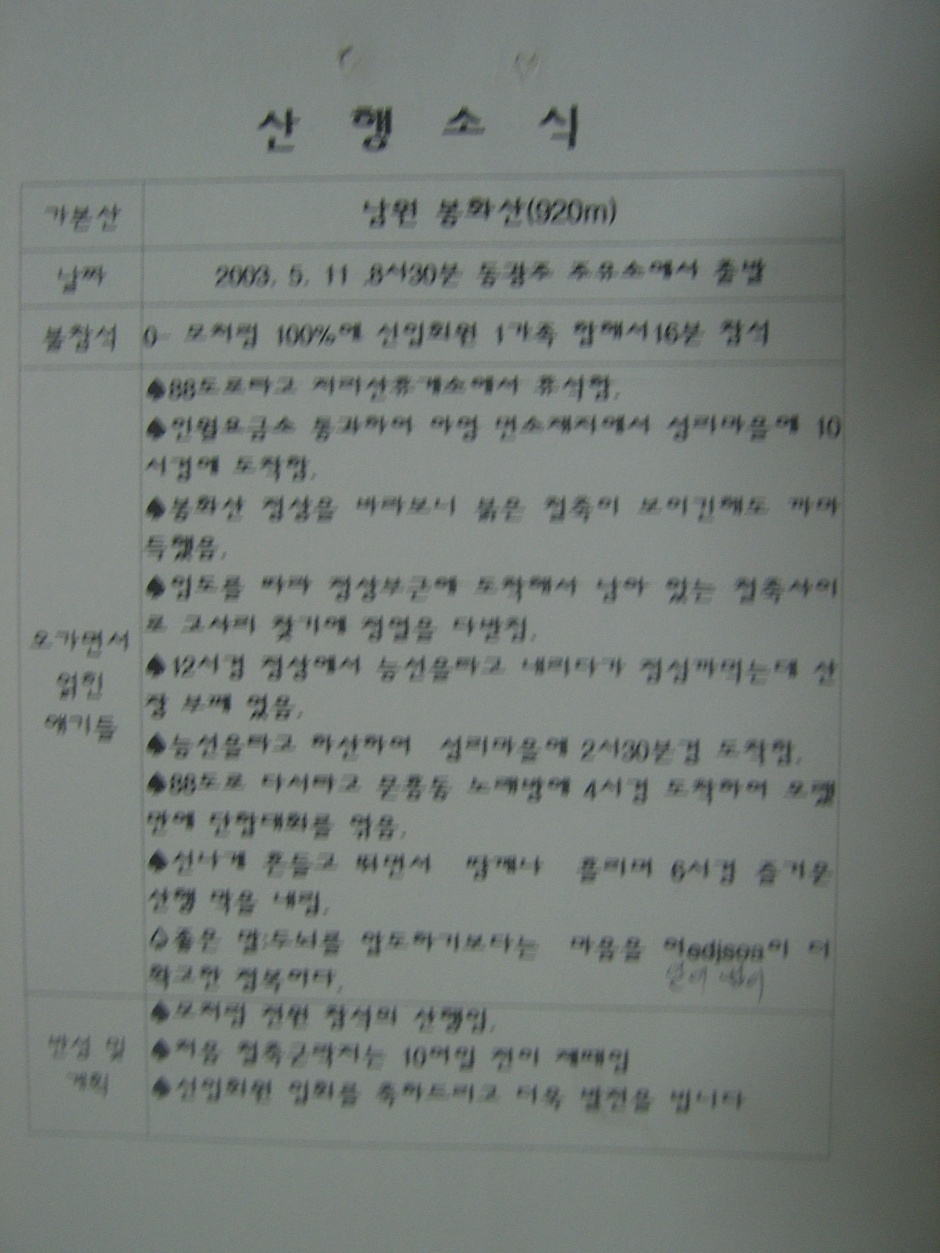 산 행 소 식
가본산 남원 봉화산(920m)
날짜 2003, 5, 11 ,8시30분 동광주 주유소에서 출발
불참석 0- 모처럼 100%에 신입회원 1가족 합해서16분 참석
♠88도로타고 지리산휴게소에서 휴식함,
♠인월요금소 통과하여 아영 면소재지에서 성리마을에 10
시경에 도착함,
♠봉화산 정상을 바라보니 붉은 철축이 보이긴해도 까마
득했음,
♠임도를 따라 정상부근에 도착해서 남아 있는 철축사이
로 고사리 찾기에 정열을 다받침,
오가면서
얽힌
얘기들
♠12시경 정상에서 능선을타고 내리다가 점심까먹는데 산
장 부깨 없음,
♠능선을타고 하산하여 성리마을에 2시30분경 도착함,
♠88도로 다시타고 문흥동 노래방에 4시경 도착하여 오랫
만에 단합대회를 엮음,
♠신나게 흔들고 뛰면서 땀깨나 흘리며 6시경 즐거운
산행 막을 내림,
좋은 말:두뇌를 압도하기보다는 마음을 어edjsea이 더
확고한 정복이다,
얻어 냄이
♠모처럼 전원 참석의 산행임,
반성 및
계획
♠처음 철축군락지는 10여일 전이 제때임
♠신입회원 입회를 축하드리고 더욱 발전을 빕니다